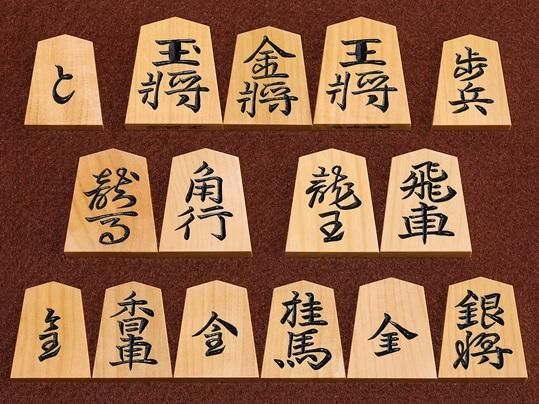 と 玉將 金將 王將 歩兵
龍馬 角行 龍王 飛車
金 香車 金 桂馬 金 銀將